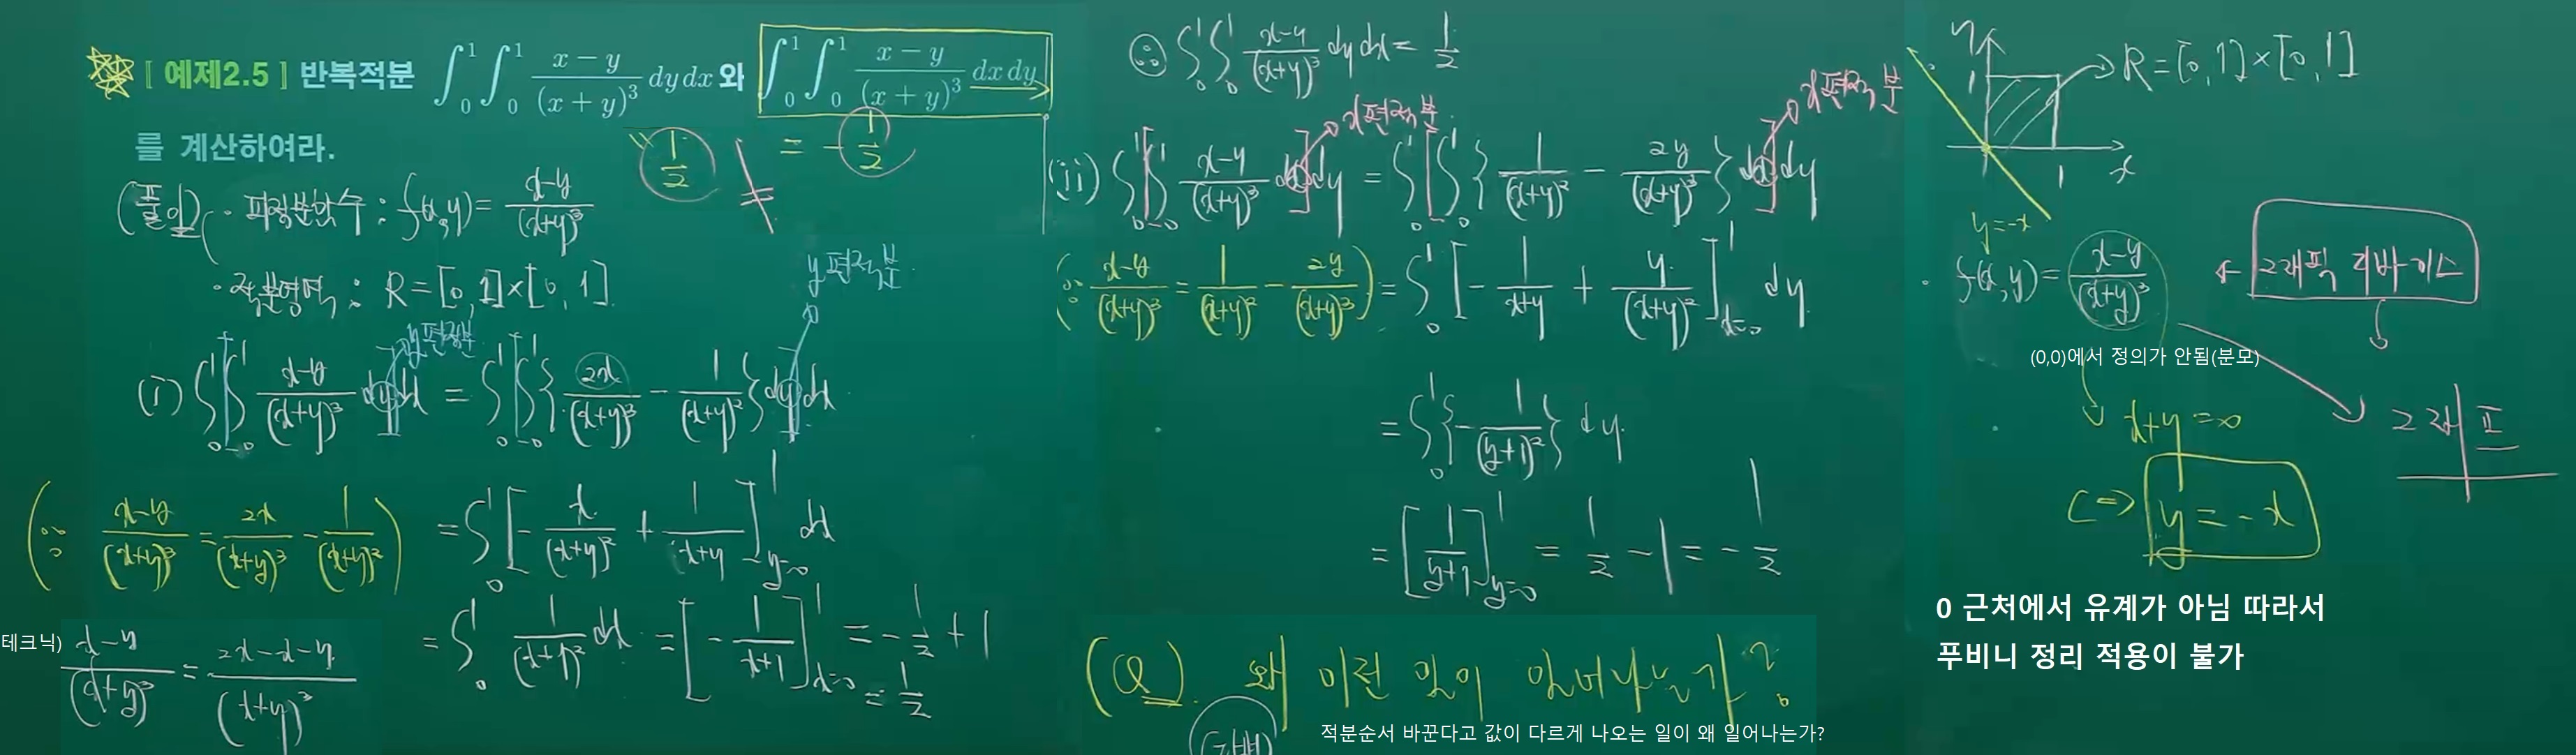 [ 예제2.5 ] 반복적분 ∫_0^1 ∫_0^1 (x−y)/(x+y)^3 dy dx 와 ∫_0^1 ∫_0^1 (x−y)/(x+y)^3 dx dy
를 계산하여라.
1/2 ≠ = −1/2
(풀이) · 피적분함수 : f(x,y) = (x−y)/(x+y)^3
· 적분영역 : R = [0,1]×[0,1]
y편적분
y편적분
(i) ∫_0^1 ∫_0^1 (x−y)/(x+y)^3 dy dx = ∫_0^1 ∫_0^1 { 2x/(x+y)^3 − 1/(x+y)^2 } dy dx
(∵ (x−y)/(x+y)^3 = 2x/(x+y)^3 − 1/(x+y)^2 )
= ∫_0^1 [ −x/(x+y)^2 + 1/(x+y) ]_{y=0}^1 dx
테크닉) (x−y)/(x+y)^3 = (2x−x−y)/(x+y)^3
= ∫_0^1 1/(x+1)^2 dx = [ −1/(x+1) ]_{x=0}^1 = −1/2 + 1
= 1/2
∴ ∫_0^1 ∫_0^1 (x−y)/(x+y)^3 dy dx = 1/2
x편적분
x편적분
(ii) ∫_0^1 ∫_0^1 (x−y)/(x+y)^3 dx dy = ∫_0^1 ∫_0^1 { 1/(x+y)^2 − 2y/(x+y)^3 } dx dy
(∵ (x−y)/(x+y)^3 = 1/(x+y)^2 − 2y/(x+y)^3 ) = ∫_0^1 [ −1/(x+y) + y/(x+y)^2 ]_{x=0}^1 dy
= ∫_0^1 { −1/(y+1)^2 } dy
= [ 1/(y+1) ]_{y=0}^1 = 1/2 − 1 = −1/2
(Q). 왜 이런 일이 일어나는가?
적분순서 바꾼다고 값이 다르게 나오는 일이 왜 일어나는가?
y
1
R = [0,1]×[0,1]
1
x
y=−x
· f(x,y) = (x−y)/(x+y)^3 ← 그래픽 디바이스
(0,0)에서 정의가 안됨(분모)
x+y=0
그래프
⇔ y = −x
0 근처에서 유계가 아님 따라서
푸비니 정리 적용이 불가